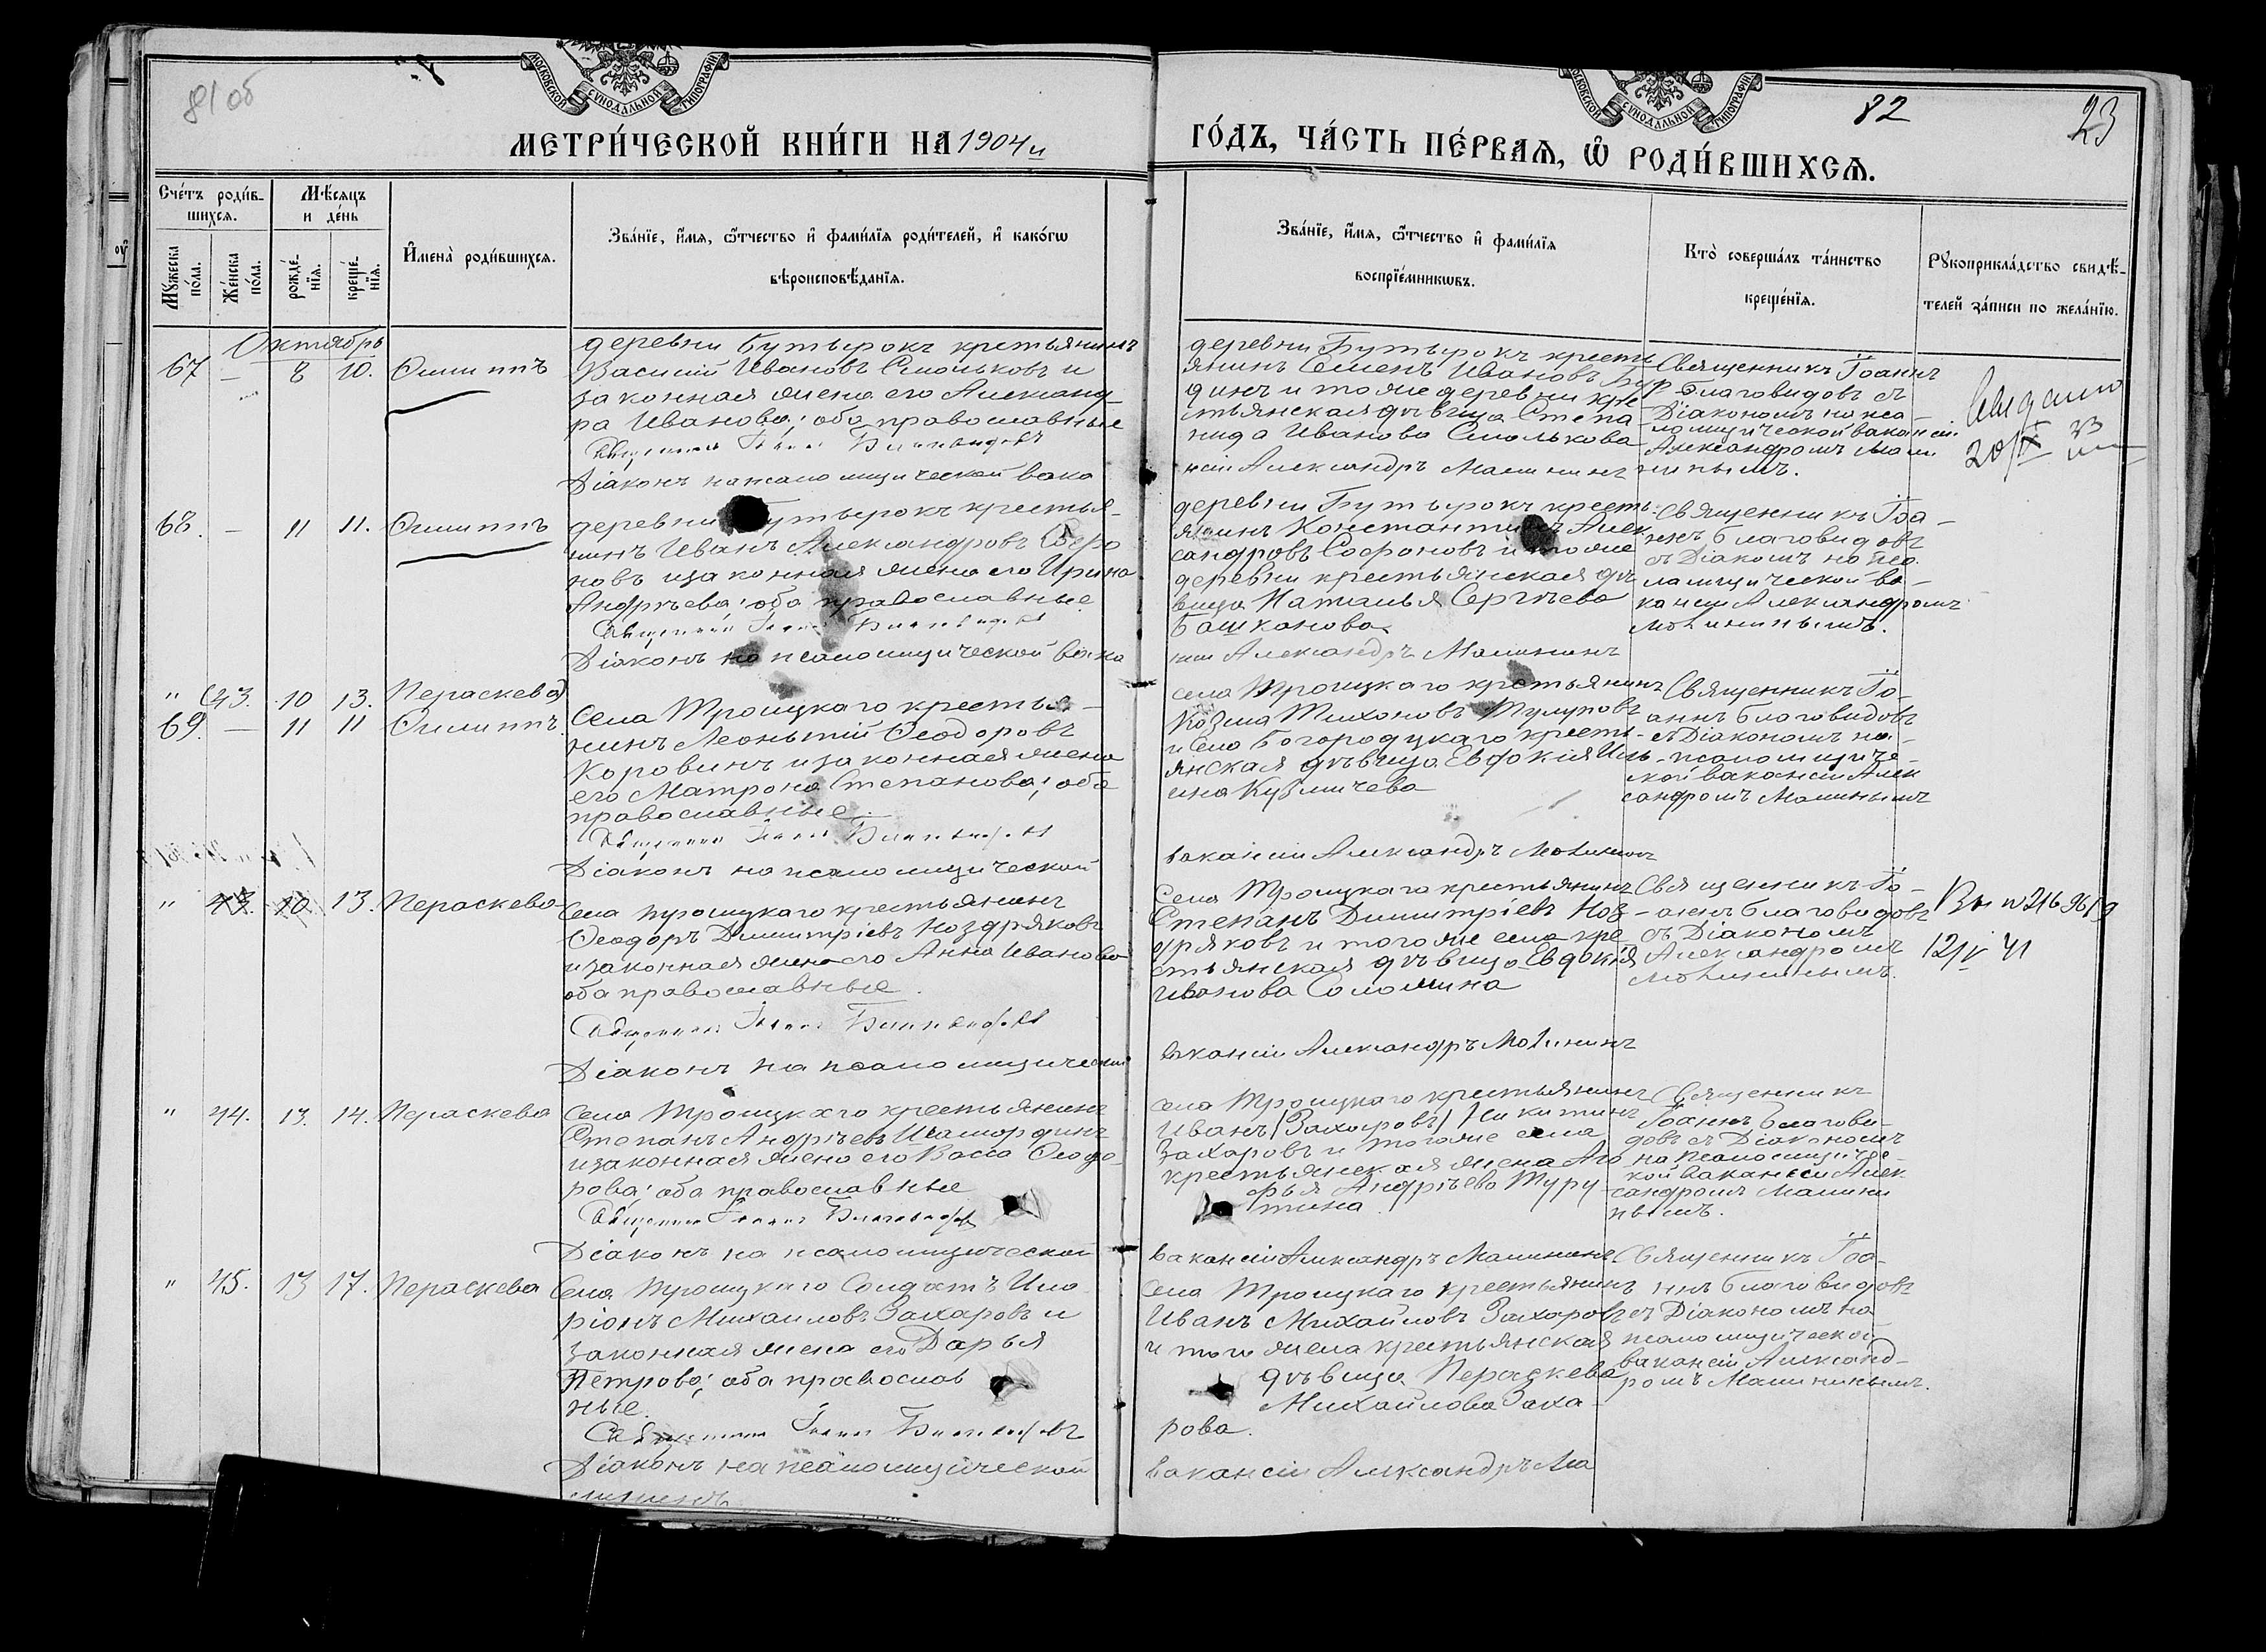 81 об
МОСКОВСКОЙ СѴНОДАЛЬНОЙ ТИПОГРАФІИ
МОСКОВСКОЙ СѴНОДАЛЬНОЙ ТИПОГРАФІИ
82
23
МЕТРИ́ЧЕСКОЙ КНИ́ГИ НА 1904 й
ГО́ДЪ, ЧА́СТЬ ПЕ́РВАѦ, Ѡ҆ РОДИ́ВШИХСѦ.
Сче́тъ роди́в-
шихсѧ.
Мꙋ́жеска по́ла.
Же́нска по́ла.
Мѣ́сѧцъ
и де́нь
рожде́-нїѧ.
креще́-нїѧ.
И҆мена̀ роди́вшихсѧ.
Зва́нїе, и҆́мѧ, ѻ҆́тчество и҆ фами́лїѧ роди́телей, и҆ како́гѡ
вѣроисповѣ́данїѧ.
Зва́нїе, и҆́мѧ, ѻ҆́тчество и҆ фами́лїѧ
воспрїе́мникѡвъ.
Кто̀ соверша́лъ та́инство
креще́нїѧ.
Рꙋкоприкла́дство свидѣ́-
телей за́писи по жела́нїю.
Октябрь
67 — 8 10. Филиппъ
деревни Бутырокъ крестьянинъ
Василій Ивановъ Смольковъ и
законная жена его Александ-
ра Иванова; оба православные
Священникъ Іоаннъ Благовидовъ
Діаконъ на псаломщической вака
деревни Бутырокъ кресть-
янинъ Семенъ Ивановъ Бур
динъ и тоже деревни кре-
стьянская дѣвица Степа-
нида Иванова Смолькова
нсіи Александръ Малининъ
Священникъ Іоаннъ
Благовидовъ съ
Діакономъ на пса-
ломщической вакансіи
Александромъ Мали
нинымъ.
68. — 11 11. Филиппъ
деревни Бутырокъ крестья-
нинъ Иванъ Александровъ Софро
новъ и законная жена его Ирина
Андрѣева; оба православные
Священникъ Іоаннъ Благовидовъ
Діаконъ на псаломщической вака
деревни Бутырокъ кресть-
янинъ Константинъ Алек
сандровъ Софроновъ и тоже
деревни крестьянская дѣ
вица Наталья Сергѣева
Башканова
нсіи Александръ Малининъ
Священникъ Іоа-
ннъ Благовидовъ
съ Діакомъ на пса
ломщической ва-
кансіи Александромъ
Малининымъ.
" (43. 10 13. Пераскева)
69. — 11 11 Филиппъ.
Села Троицкаго крестья-
нинъ Леонтій Феодоровъ
Коровинъ и законная жена
его Матрона Степанова; оба
православные.
Священникъ Іоаннъ Благовидовъ
Діаконъ на псаломщической
села Троицкаго крестьянинъ
Козма Тихоновъ Тулуповъ
и села Богородицкаго кресть-
янская дѣвица Евфокія Иль-
ина Кузмичева
вакансіи Александръ Малининъ
Священникъ Іо-
аннъ Благовидовъ
съ Діакономъ на-
псаломщиче-
ской вакансіи Алек
сандромъ Малинымъ
" 43. 10 13. Пераскева
Села Троицкаго крестьянинъ
Феодоръ Димитріевъ Ноздряковъ
и законная жена его Анна Иванова
оба православные.
Священникъ Іоаннъ Благовидовъ
Діаконъ на псаломщической
Села Троицкаго крестьянинъ
Степанъ Димитріевъ Ноз-
дряковъ и того же села кре
стьянская дѣвица Евдокія
Иванова Соломина
вакансіи Александръ Малининъ
Священникъ Іо-
аннъ Благовидовъ
съ Діакономъ
Александромъ
Малининымъ.
12/V 41
" 44. 13. 14. Пераскева
Села Троицкаго крестьянинъ
Степанъ Андрѣевъ
и законная жена его Васса Феодо-
рова; оба православные
Священникъ Іоаннъ Благовидовъ
Діаконъ на псаломщической
Села Троицкаго крестьянинъ
Иванъ (Захаровъ) Никитинъ
Захаровъ и того же села
крестьянская жена Ага
фья Андрѣева Туру-
тина.
вакансіи Александръ Малининъ.
Священникъ
Іоаннъ Благови-
довъ съ Діакономъ
на псаломщиче-
кой вакансіи Алек
сандромъ Малини
нымъ.
" 45. 13 17. Пераскева
Села Троицкаго Солдатъ Ила
ріонъ Михаиловъ Захаровъ и
законная жена его Дарья
Петрова; оба православ
ные.
Священникъ Іоаннъ Благовидовъ
Діаконъ на псаломщической
лининъ
Села Троицкаго крестьянинъ
Иванъ Михайловъ Захаровъ
и того жела крестьянская
дѣвица Пераскева
Михайлова Заха-
рова.
вакансіи Александръ Ма
Священникъ Іоа-
ннъ Благовидовъ
съ Діакономъ на
псаломщической
вакансіи Александ-
ромъ Малининымъ.